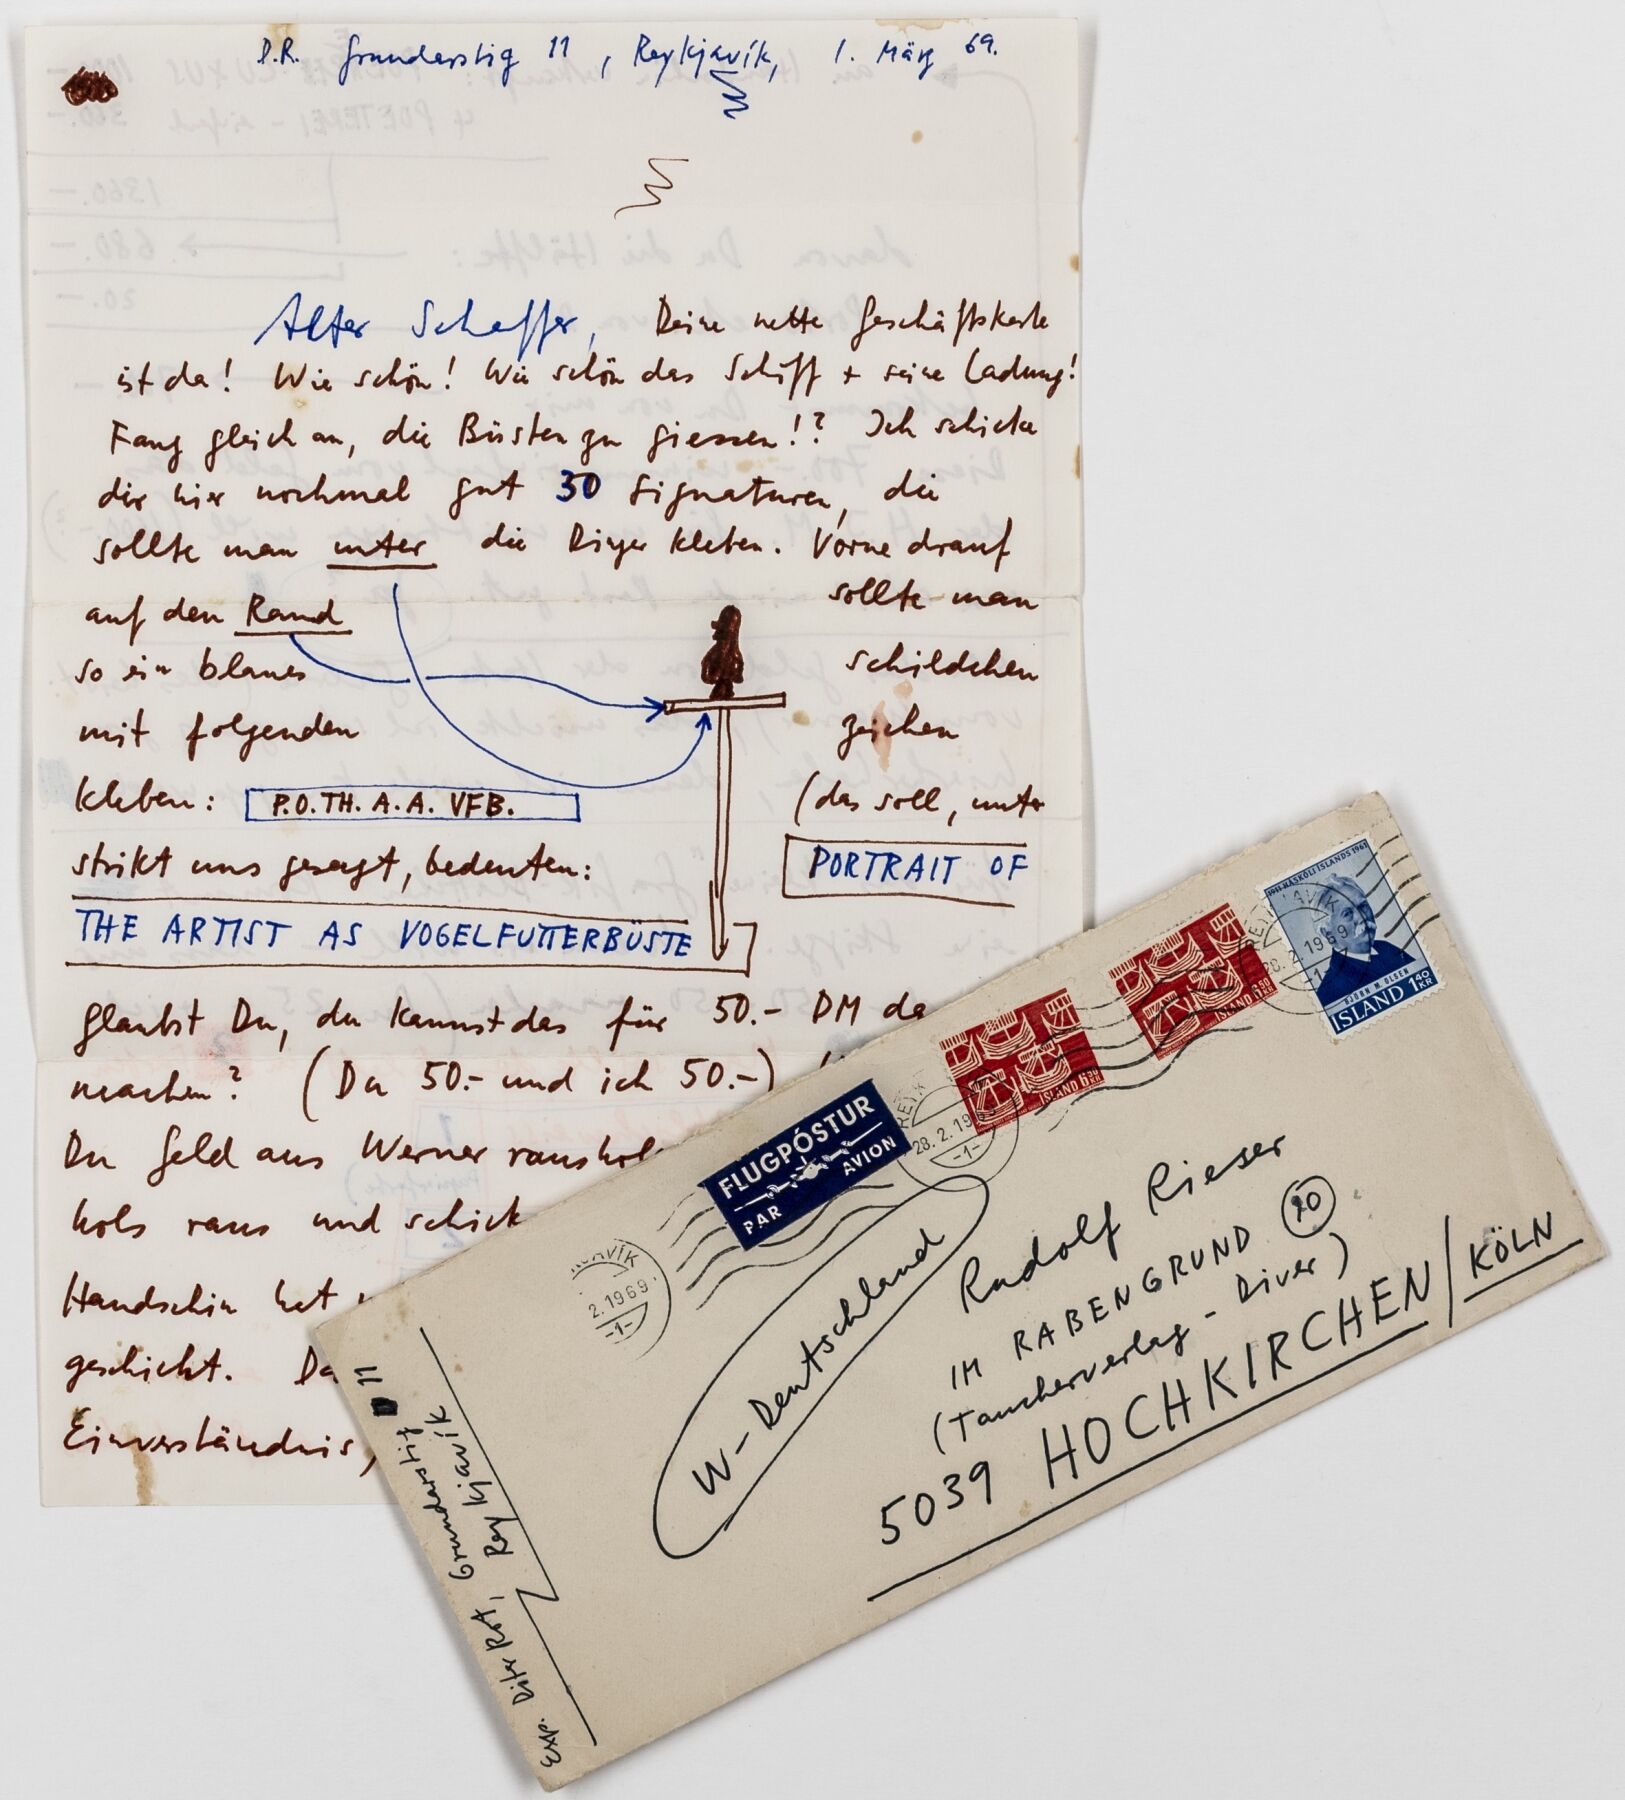 D.R. Grundarstig 11, Reykjavík, 1. März 69.
Alter Schaffer, Deine nette Geschäftskarte
ist da! Wie schön! Wie schön das Schiff + seine Ladung!
Fang gleich an, die Büsten zu giessen!? Ich schicke
dir hier nochmal gut 30 Signaturen, die
sollte man unter die Dinger kleben. Vorne drauf
auf den Rand
so ein blaues
mit folgenden
kleben: P.O.TH.A.A.VFB.
sollte man
schildchen
zeichen
(das soll, unter
strikt uns gesagt, bedeuten: PORTRAIT OF
THE ARTIST AS VOGELFUTTERBÜSTE
glaubst Du, du kannst das für 50.- DM da
machen? (Du 50.- und ich 50.-)
Du Geld aus Werner
hols raus und schick
Handschin hat
geschickt.
Einverständnis,
FLUGPÓSTUR
PAR AVION
REYKJAVÍK
28.2.1969
-1-
ÍSLAND 6.50 KR
ÍSLAND 6.50 KR
1911-HÁSKÓLI ÍSLANDS 1961
BJÖRN M. OLSEN
ÍSLAND 1.40 KR
W-Deutschland
Rudolf Rieser
IM RABENGRUND 20
(Taucherverlag - Diver)
5039 HOCHKIRCHEN/KÖLN
Exp. Diter Rot, Grundarstig 11
Reykjavík